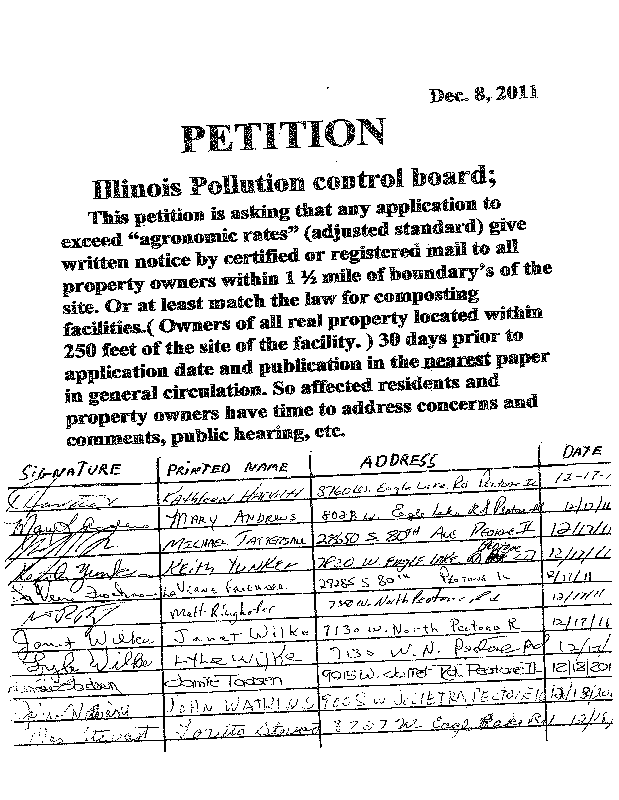 Dec. 8, 2011
PETITION
Illinois Pollution control board;
This petition is asking that any application to
exceed “agronomic rates” (adjusted standard) give
written notice by certified or registered mail to all
property owners within 1 ½ mile of boundary’s of the
site. Or at least match the law for composting
facilities.( Owners of all real property located within
250 feet of the site of the facility. ) 30 days prior to
application date and publication in the nearest paper
in general circulation. So affected residents and
property owners have time to address concerns and
comments, public hearing, etc.
SIGNATURE PRINTED NAME ADDRESS DATE
KATHLEEN 8760 W. Eagle Lake Rd Peotone Il 12-17-
MARY ANDREWS 8028 W. Eagle Lake Rd Peotone 12/17/11
MICHAEL TATTERSALL 28650 S 80TH Ave PEOTONE Il 12/17/11
Keith Yunker KEITH YUNKER 7820 W. EAGLE LAKE Peotone Il 12/17/11
29285 S 80th Peotone Il 12/17/11
Matt Ringhofer W. North Peotone Rd 12/17/11
Janet Wilke Janet Wilke 7130 W. North Peotone R 12/17/11
Lyle Wilke Lyle Wilke 7130 W. N. Peotone Rd 12/17/
Jamie Tadsen 9015 W. Joliet Rd. Peotone Il 12/18/201
JOHN WATKINS 9005 W JOLIET RD, PEOTONE IL 12/18/20
Mrs Stewart Stewart 8707 W. Eagle Lake Rd 12/18/